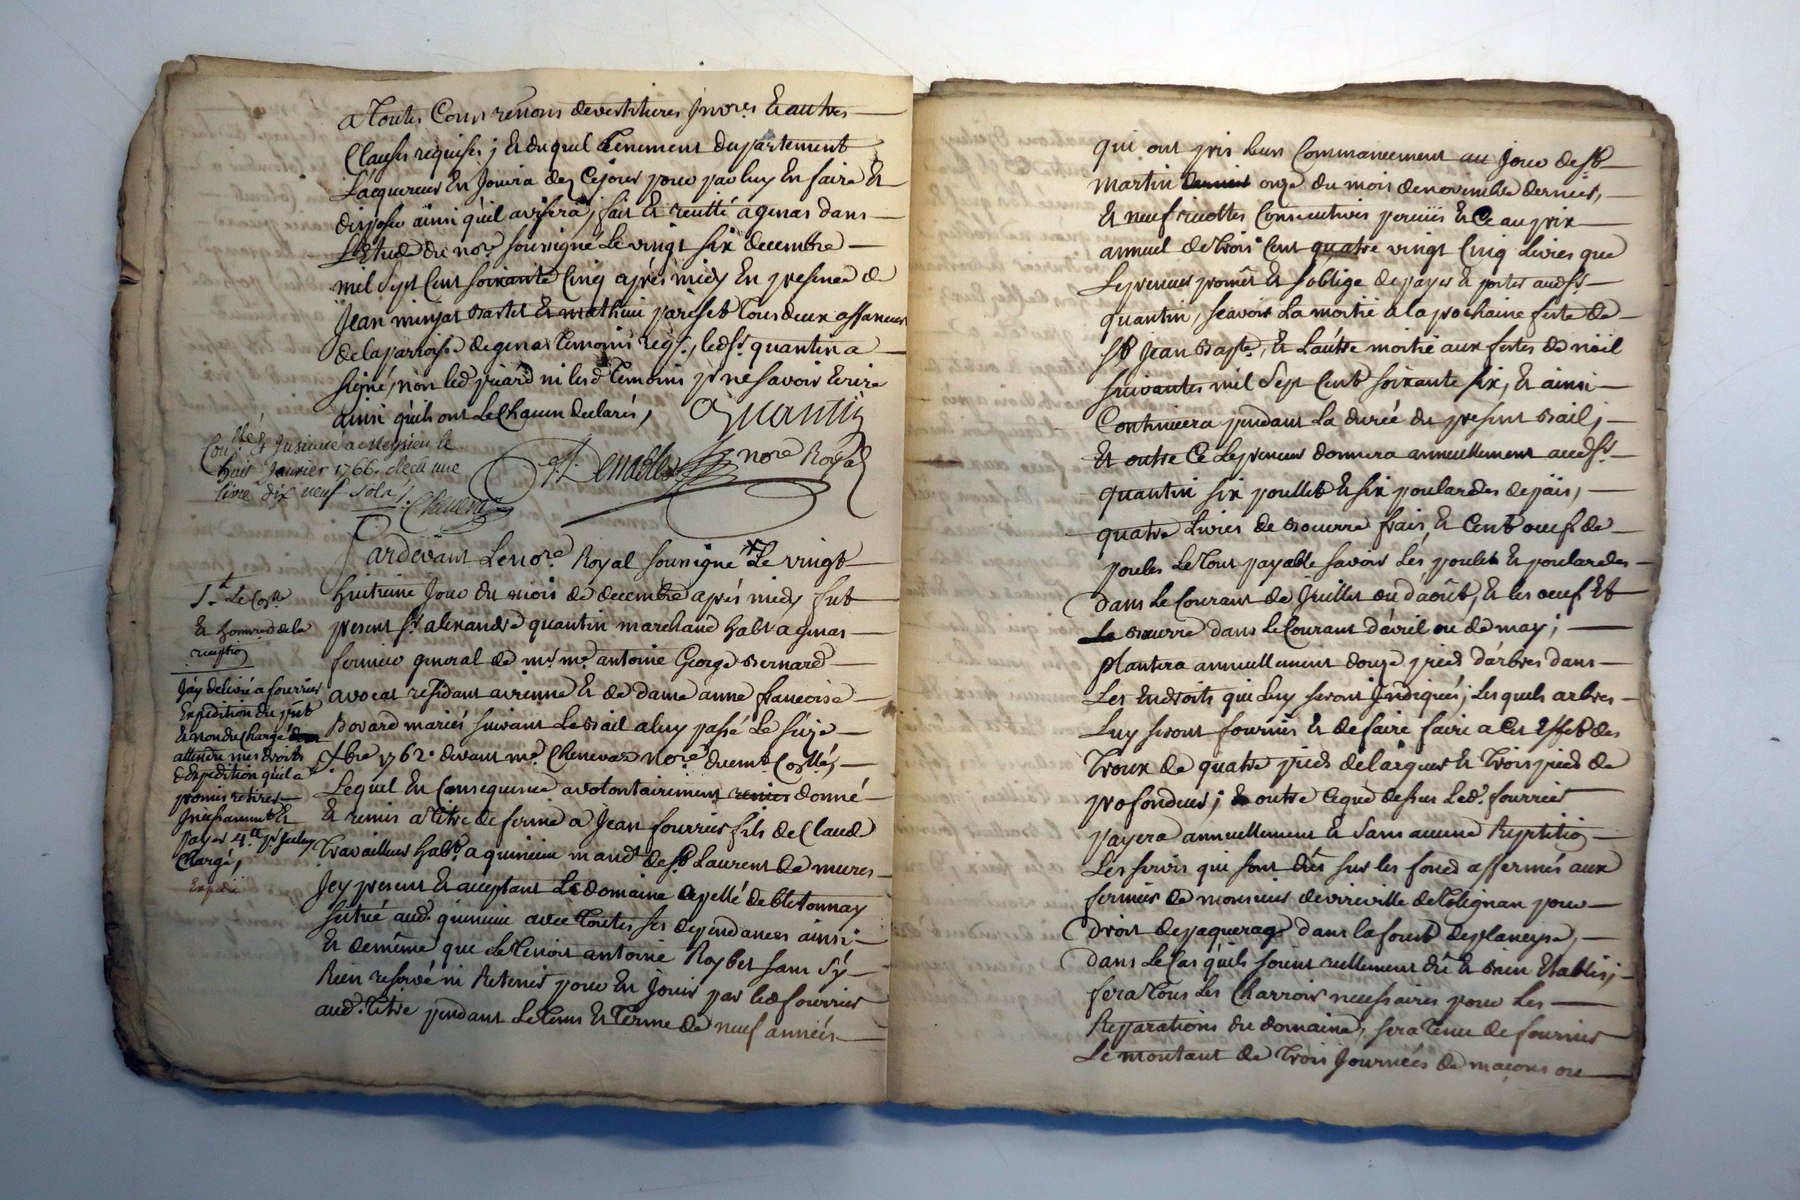 a toutes Communions devestitures Invor.s et autres
Clauses requises; et duquel tenement departement
l'acquereur En Jouira dez Cejour pour par luy En faire et
disposer ainsi quil avisera, fait et recitté a genas dans
L'Etude du no.re soussigné Le vingt six decembre
mil sept Cent soixante Cinq après midy En presence de
Jean minjat Bartet et mathieu parisset tous deux affaneurs
de la parroisse de genas temoins req.s, led s.r quantin a
signé, non led picard ni lesd temoins p.r ne savoir Ecrire
ainsi quils ont Le Chacun declarés,
quantin
nore Royal
Con.llé et Insinué a Meysieu le
huit Janvier 1766. Reçu une
livre dix neuf sols
Chenevas
Pardevant Le no.re Royal soussigné Le vingt
huitieme Jour du mois de decembre après midy fut
present s.r alexandre quantin marchand hab.t a genas
fermier general de m.r m.e antoine George Bernard
avocat residant a vienne et de dame anne françoise
Bovard mariés suivant Le Bail a luy passé Le seize
xbre 1762. devant m.e Chenevas No.re
Lequel En Consequence a volontairement remis donné
et remis a titre de ferme a Jean fourrier fils de Claude
travailleur hab.t a quincieu mand.t de s.t Laurent de mures
Jcy present et acceptant Le domaine appellé de bletonnay
scitué aud. quincieu avec toutes ses dependances ainsi
et de même que Le Tenoit antoine Roybet sans s'y
Rien reservé ni Retenir pour En Jouir par led fourrier
aud. titre pendant Le tems et terme de neuf années
J.t Le Cosse
et homred de la
reception
J'ay delivré a fourrier
Expedition du p.nt
et non du Chargé
attendu mes droits
d'expedition quil a
promis retirer
Incessamment et
payer 4.tt p.r
Charge,
Expedié
qui ont pris leurs Commancement au Jour de s.t
martin dernier onze du mois de novembre dernier,
et neuf recoltes Consecutives percües et Ce au prix
annuel de trois Cent quatre vingt Cinq Livres que
Le preneur promet et s'oblige de payer et porter aud s.r
quantin, scavoir La moitié a la prochaine feste de
s.t Jean Bapt.e, et L'autre moitié aux festes de noël
suivantes mil sept Cent soixante six, et ainsi
Continuera pendant La durée du present Bail;
et outre Ce Le preneur donnera annuellement aud s.r
quantin six poullets et six poulardes de pair,
quatre Livres de Beurre frais, et Cent oeufs de
poules Le tout payable savoir Les poulets et poulardes
dans Le Courant de Juillet ou d'août, et les oeufs Et
Le Beurre dans Le Courant d'avril ou de may;
plantera annuellement douze pieds d'arbres dans
Les Endroits qui Luy seront Jndiqués; Les quels arbres
Luy seront fournis et de faire faire a Cet Effet des
troux de quatre pieds de largeur et trois pieds de
profondeur; et outre Ce que dessus Led. fourrier
payera annuellement et sans aucune Repetition
Les servis qui sont dûs sur les fonds affermés aux
fermiers de monsieur de vireville de tolignan pour
droit de paquerage dans la forest de planeyse,
dans Le Cas quils soient reellement dû et Bien Etablis;
fera tous Les Charrois necessaires pour Les
Reparations du domaine, sera tenu de fournir
Le montant de trois Journées de maçons ou